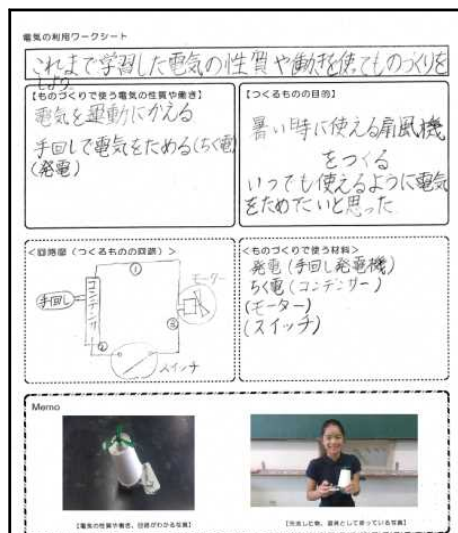 電気の利用ワークシート
これまで学習した電気の性質や働きを使てものづくりを
しよう。
【ものづくりで使う電気の性質や働き】
電気を運動にかえる
手回しで電気をためる(ちく電)
(発電)
【つくるものの目的】
暑い時に使える扇風機
をつくる
いつでも使えるように電気
をためたいと思った
<回路図(つくるものの回路)>
①
モーター
手回し
コンデンサー
③
②
スイッチ
<ものづくりで使う材料>
発電(手回し発電機)
ちく電(コンデンサー)
(モーター)
(スイッチ)
Memo
【電気の性質や働き、回路がわかる写真】
【完成した物、道具として使っている写真】